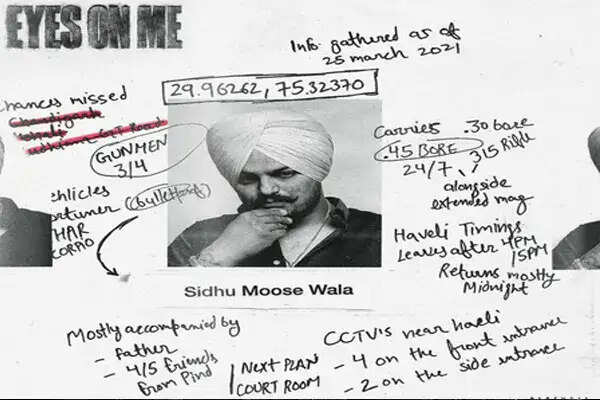 EYES ON ME
Info gathered as of
25 march 2021
29.96262, 75.32370
chances missed
Chandigarh
GT Road
GUNMEN
3/4
Carries .30 bore
.45 BORE
24/7, 315 Rifle
alongside
extended mag
ehlicles
ortuner (bulletproof)
HAR
CORPIO
Haveli Timings
Leaves after 4PM
/5PM
Returns mostly
Midnight
Sidhu Moose Wala
Mostly accompanied by
- Father
- 4/5 friends
from Pind
NEXT PLAN
COURT ROOM
CCTV's near haveli
- 4 on the front entrance
- 2 on the side entrance